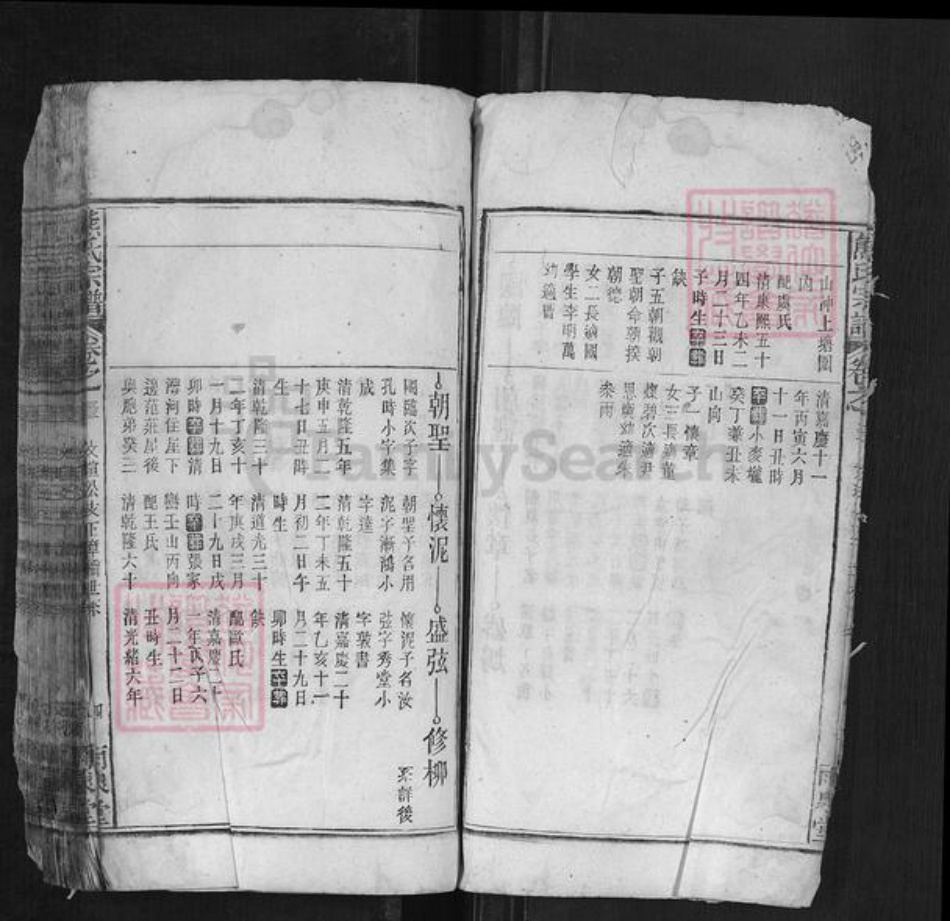 熊氏宗譜
山沖上塘園
內
配虞氏
清康熙五十
四年乙未二
月二十三日
子時生卒葬
缺
子五朝觀朝
聖朝命朝揆
朝德
女二長適國
學生李明萬
幼適曹
清嘉慶十一
年丙寅六月
十一日丑時
卒葬小麥壠
癸丁兼丑未
山向
子一懷章
女三長適董
次適尹
思 幼適朱
雨泉堂
朝聖
懷泥
盛弦
修柳
系詳後
國臨次子字
孔時小字集
成
清乾隆五年
庚申五月二
十七日丑時
生
清乾隆三十
二年丁亥十
一月十九日
卯時卒葬清
灣河住屋下
邊范莊屋後
與胞弟癸三
朝聖子名用
泥字漸鴻小
字達
清乾隆五十
二年丁未五
月初二日午
時生
清道光三十
年庚戌三月
二十九日戌
時卒葬張家
壬山丙向
配王氏
清乾隆六十
懷泥子名汝
弦字秀堂小
字敦書
清嘉慶二十
年乙亥十一
月二十九日
卯時生卒葬
缺
配歐氏
清嘉慶二十
一年丙子六
月二十二日
丑時生
清光緒六年
熊氏宗譜
四
雨泉堂
FamilySearch